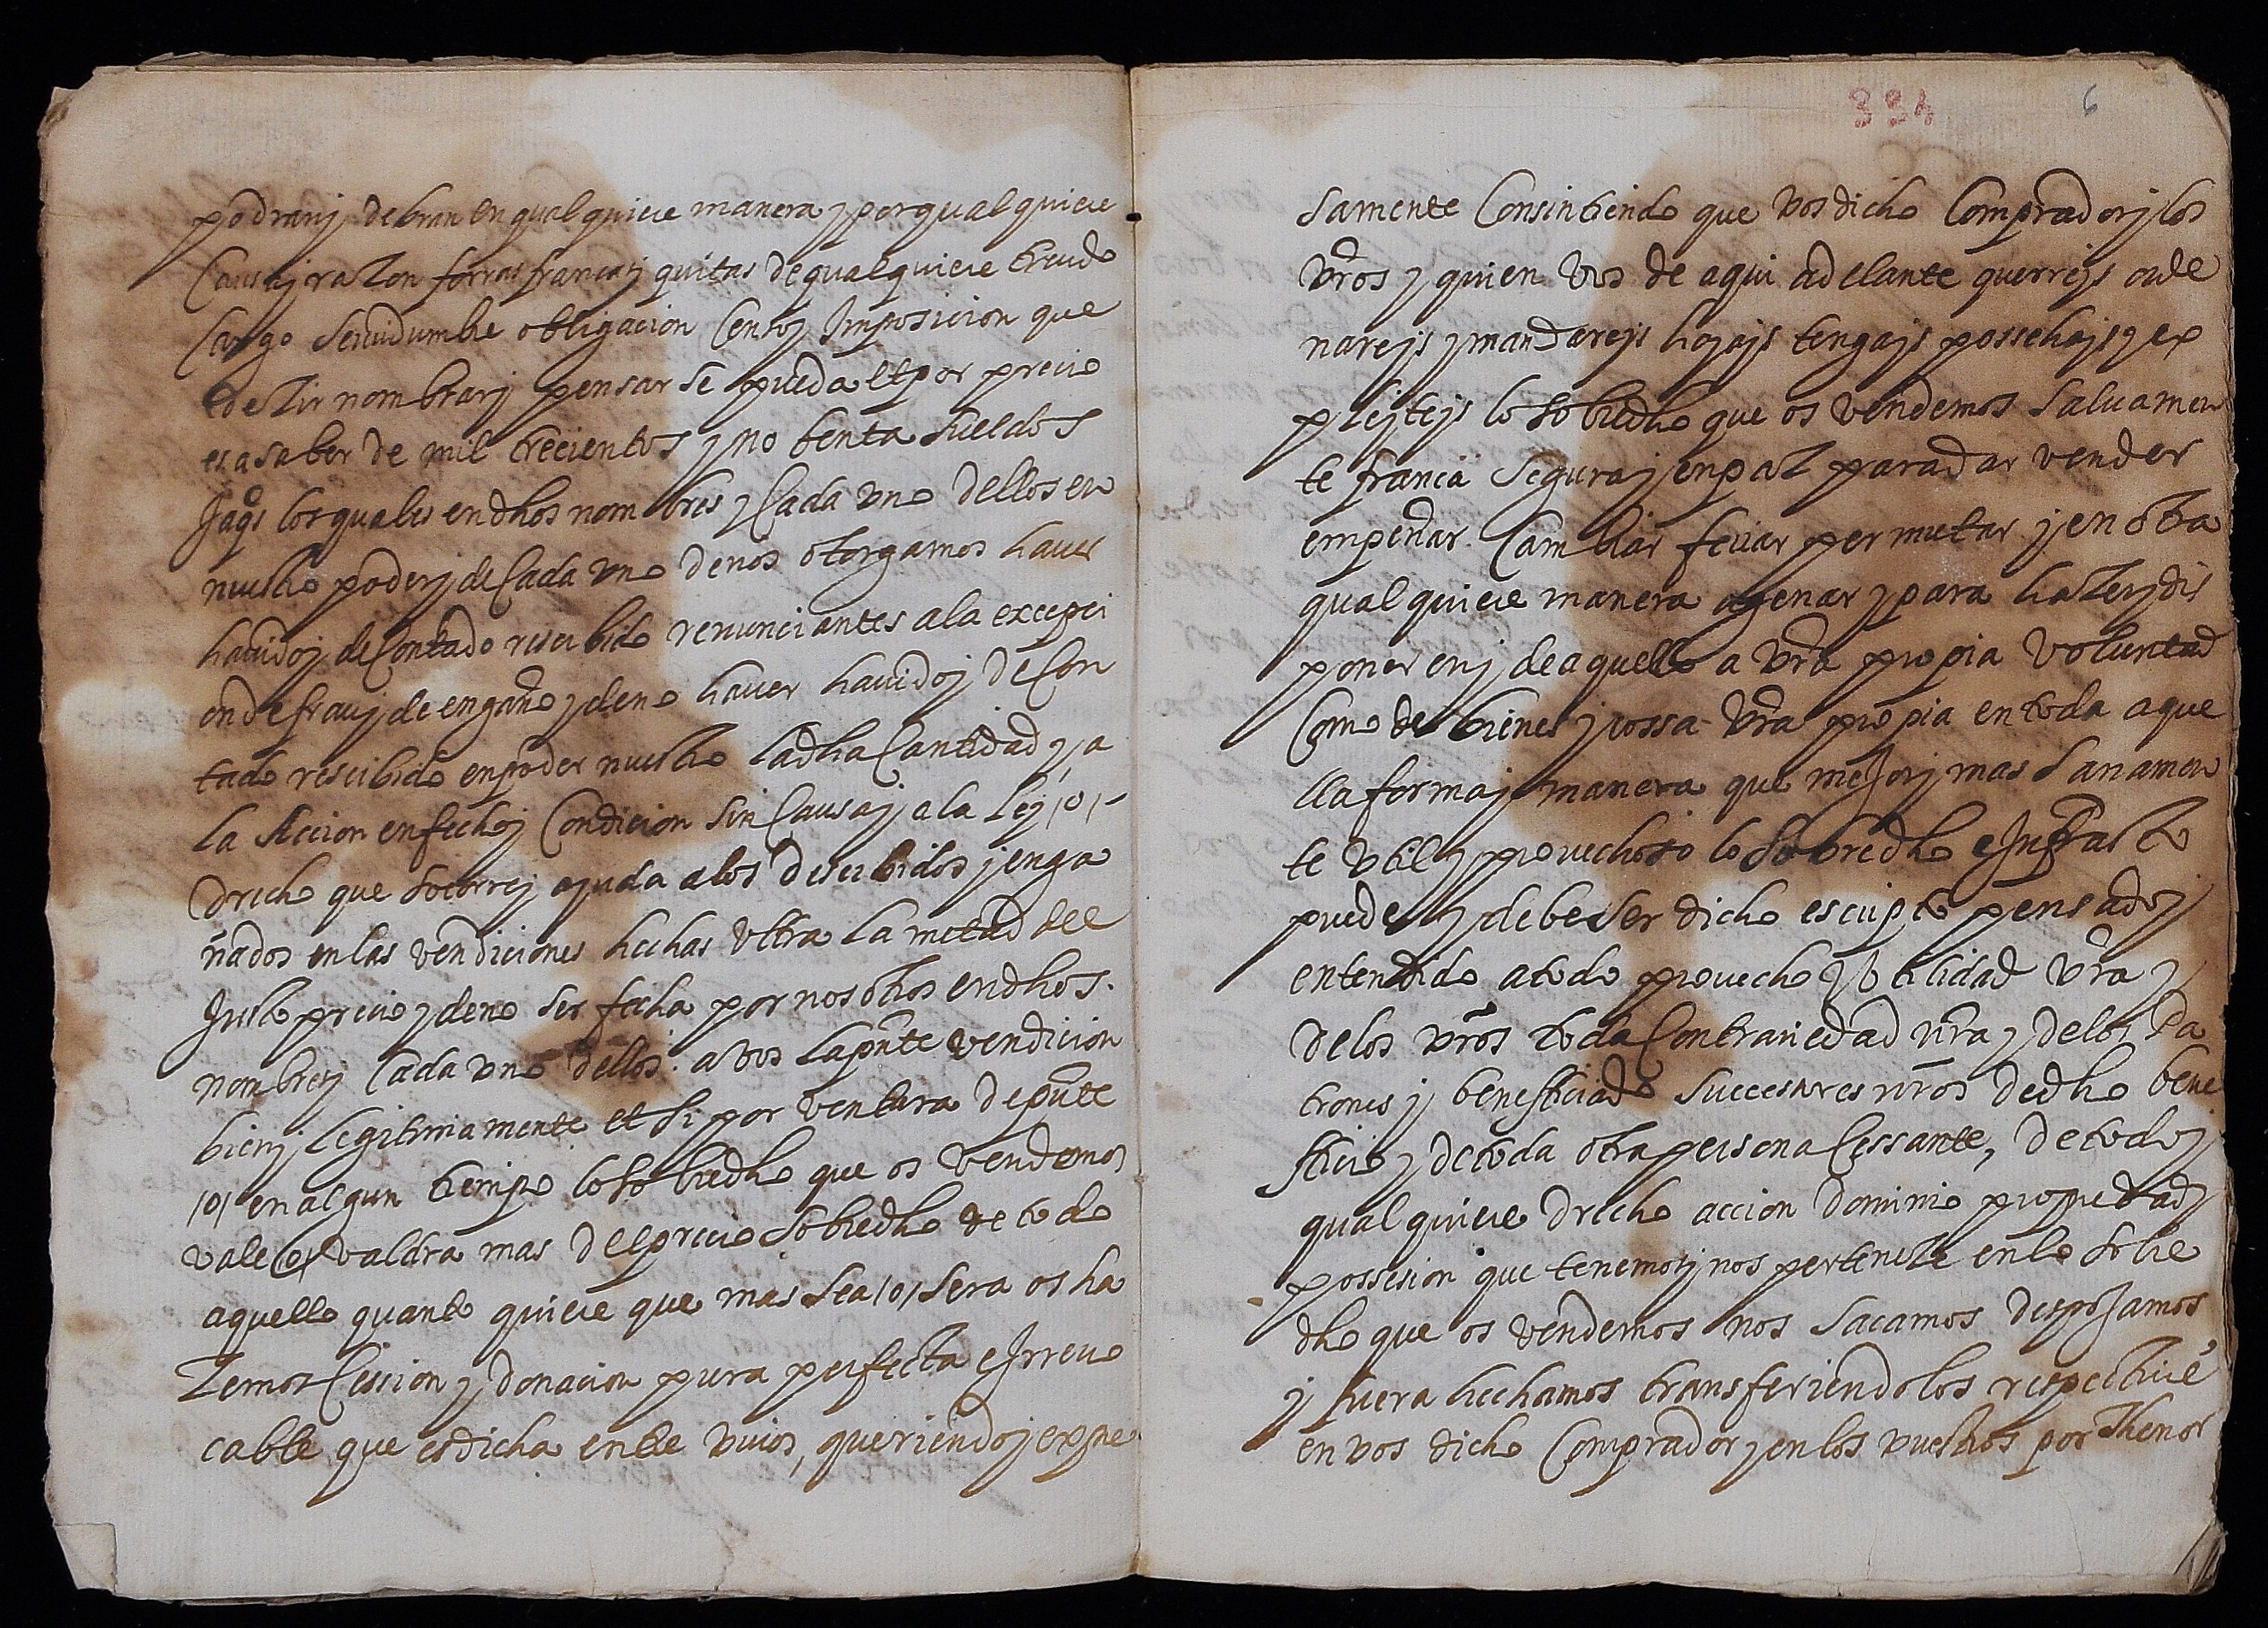 podran y debran en qual quiere manera y por qual quiere
Causa y razon forras francas y quitas de qual quiere treudo
Cargo Seruidumbre obligacion Censo y Imposicion que
dezir nombrar y pensar se pueda et por precio
es a saber de mil trecientos y nobenta sueldos
Jaqs los quales en dhos nombres y Cada vno dellos en
nuestro poder y de Cada vno de nos otorgamos hauer
hauido y de Contado resciuido renunciantes a la excepci
on de frau y de engaño y de no hauer hauido y de Con
tado rescibido en poder nuestro la dha Cantidad y a
la Accion en fecho y Condicion sin Causa y a la ley /o/
drecho que socorre y ajuda a los desciuidos y enga
ñados en las vendiciones hechas vltra la metad del
Justo precio y de no ser fecha por nosotros en dhos
nombres y Cada vno dellos a vos la pnte vendicion
bien y legitimamente et si por ventura de pnte
/o/ en algun tiempo lo sobredho que os vendemos
vale o valdra mas del precio sobredho de todo
aquello quanto quiere que mas sea /o/ sera os ha
zemos Cession y donacion pura perfecta e Irreuo
cable que es dicha entre viuos, queriendo y expre
334 6
samente Consintiendo que vos dicho Comprador y los
vros y quien vos de aqui adelante querreys orde
nareys y mandareys hayays tengays possehays y ex
pleyteys lo sobredho que os vendemos saluamen
te franca segura y en paz para dar vender
empeñar Cambiar feriar permutar y en otra
qual quiere manera agenar y para hazer y dis
poner en y de aquello a vra propia voluntad
Como de bienes y cossa vra propia en toda aque
lla forma y manera que mejor y mas sanamen
te vtil y prouechoso lo sobredho e Infrascto
puede y debe ser dicho escripto pensado y
entendido a todo prouecho y vtilidad vra y
de los vros toda Contrariedad vra y de los Pa
trones y beneficiado successores vros de dho bene
ficio y de toda otra persona Cessante, de todo y
qual quiere drecho accion dominio propiedad y
possesion que tenemos y nos pertenece en lo sobre
dho que os vendemos nos sacamos despojamos
y fuera hechamos transferiendolos respectiue
en vos dicho Comprador y en los vuestros por Thenor